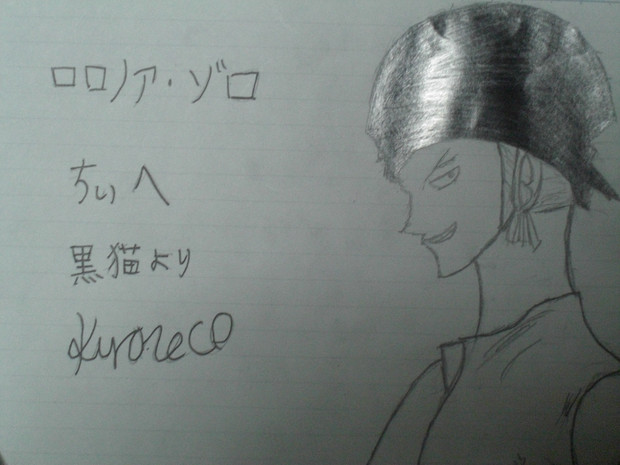 ロロノア・ゾロ
ちぃへ
黒猫より
Kuroneco